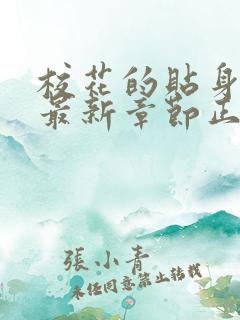 校花的貼身
最新章節正
張小青
未经同意禁止转载